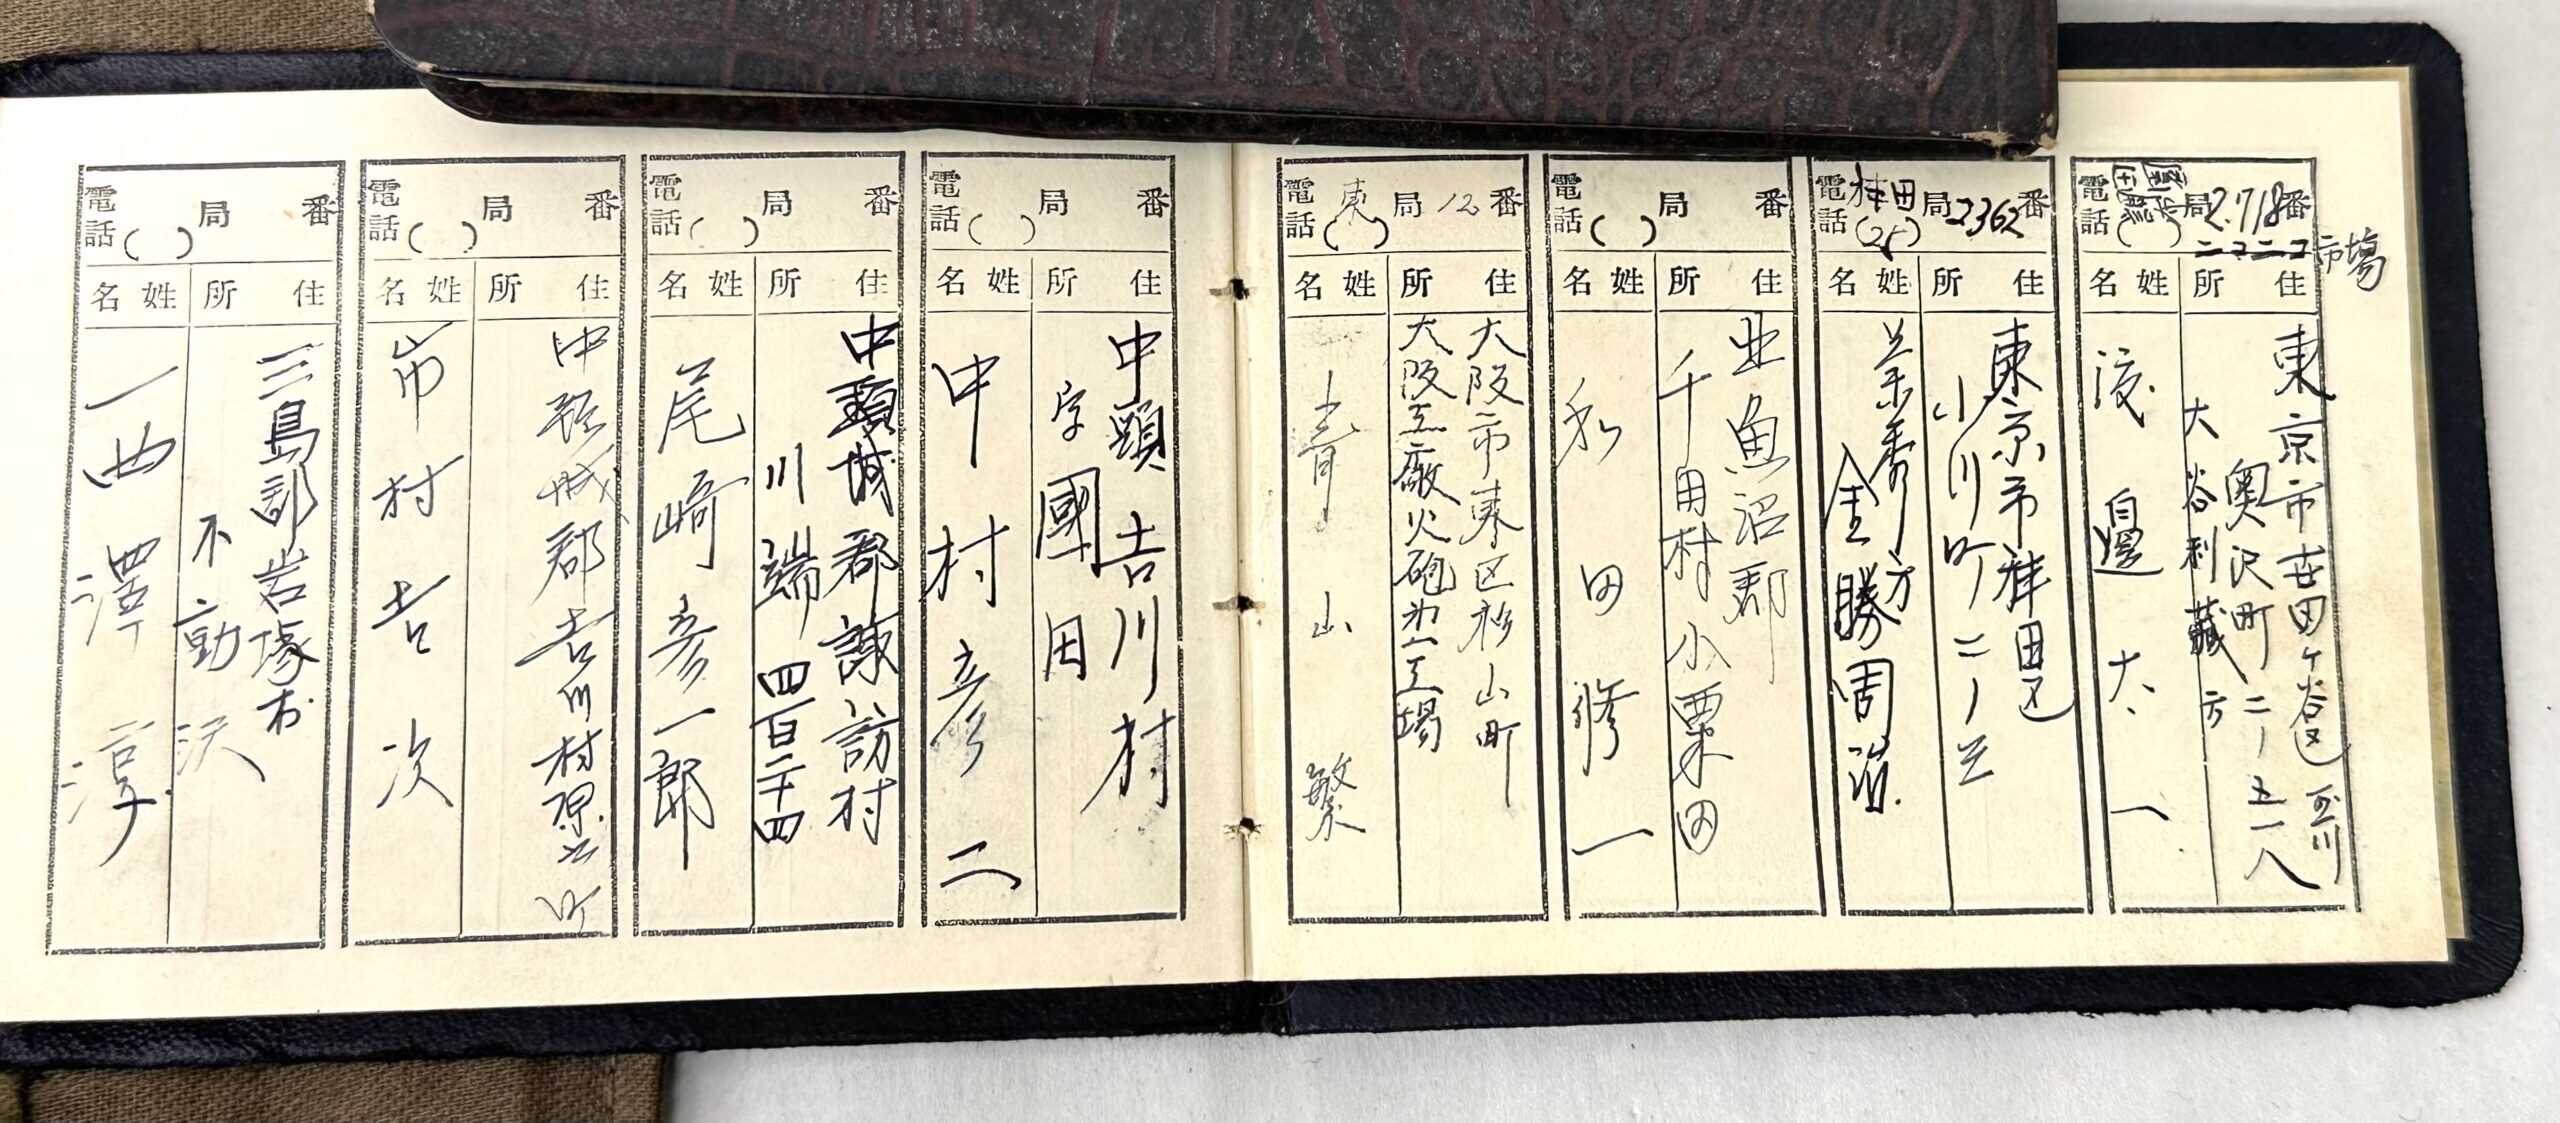 電話 田園調布 局 2,718番
ニコニコ市場
住所 姓名
東京市世田ヶ谷区玉川
奥沢町二ノ五一八
大谷利藏方
渡邊大一
電話 神田(25)局 2362番
住所 姓名
東京市神田区
小川町二ノ三
金勝周滋
電話( ) 局 番
住所 姓名
北魚沼郡
千田村小粟田
和田修一
電話(東)局 12番
住所 姓名
大阪市東区杉山町
大阪工廠火砲第一工場
青山繁
電話( ) 局 番
住所 姓名
中頸吉川村
字國田
中村彦二
電話( ) 局 番
住所 姓名
中頸城郡諏訪村
川端 四百二十四
尾崎彦一郎
電話( ) 局 番
住所 姓名
中頸城郡吉川村原之町
市村吉次
電話( ) 局 番
住所 姓名
三島郡岩塚村
不動沢
西澤淳一